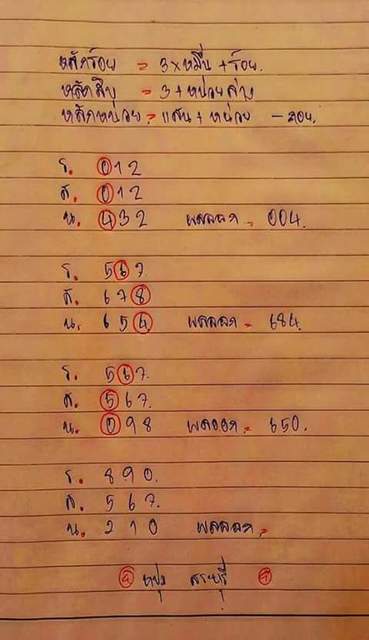 หลักร้อย = 3 x หมื่น + ร้อย.
หลักสิบ = 3 + หน่วยล่าง
หลักหน่วย = แสน + หน่วย - ลบ.
ร. 012
ส. 012
น. 432 ผลออก = 004.
ร. 567
ส. 678
น. 654 ผลออก = 684.
ร. 567.
ส. 567.
น. 098 ผลออก = 650.
ร. 890.
ส. 567.
น. 210 ผลออก =
หนุ่ม สระบุรี